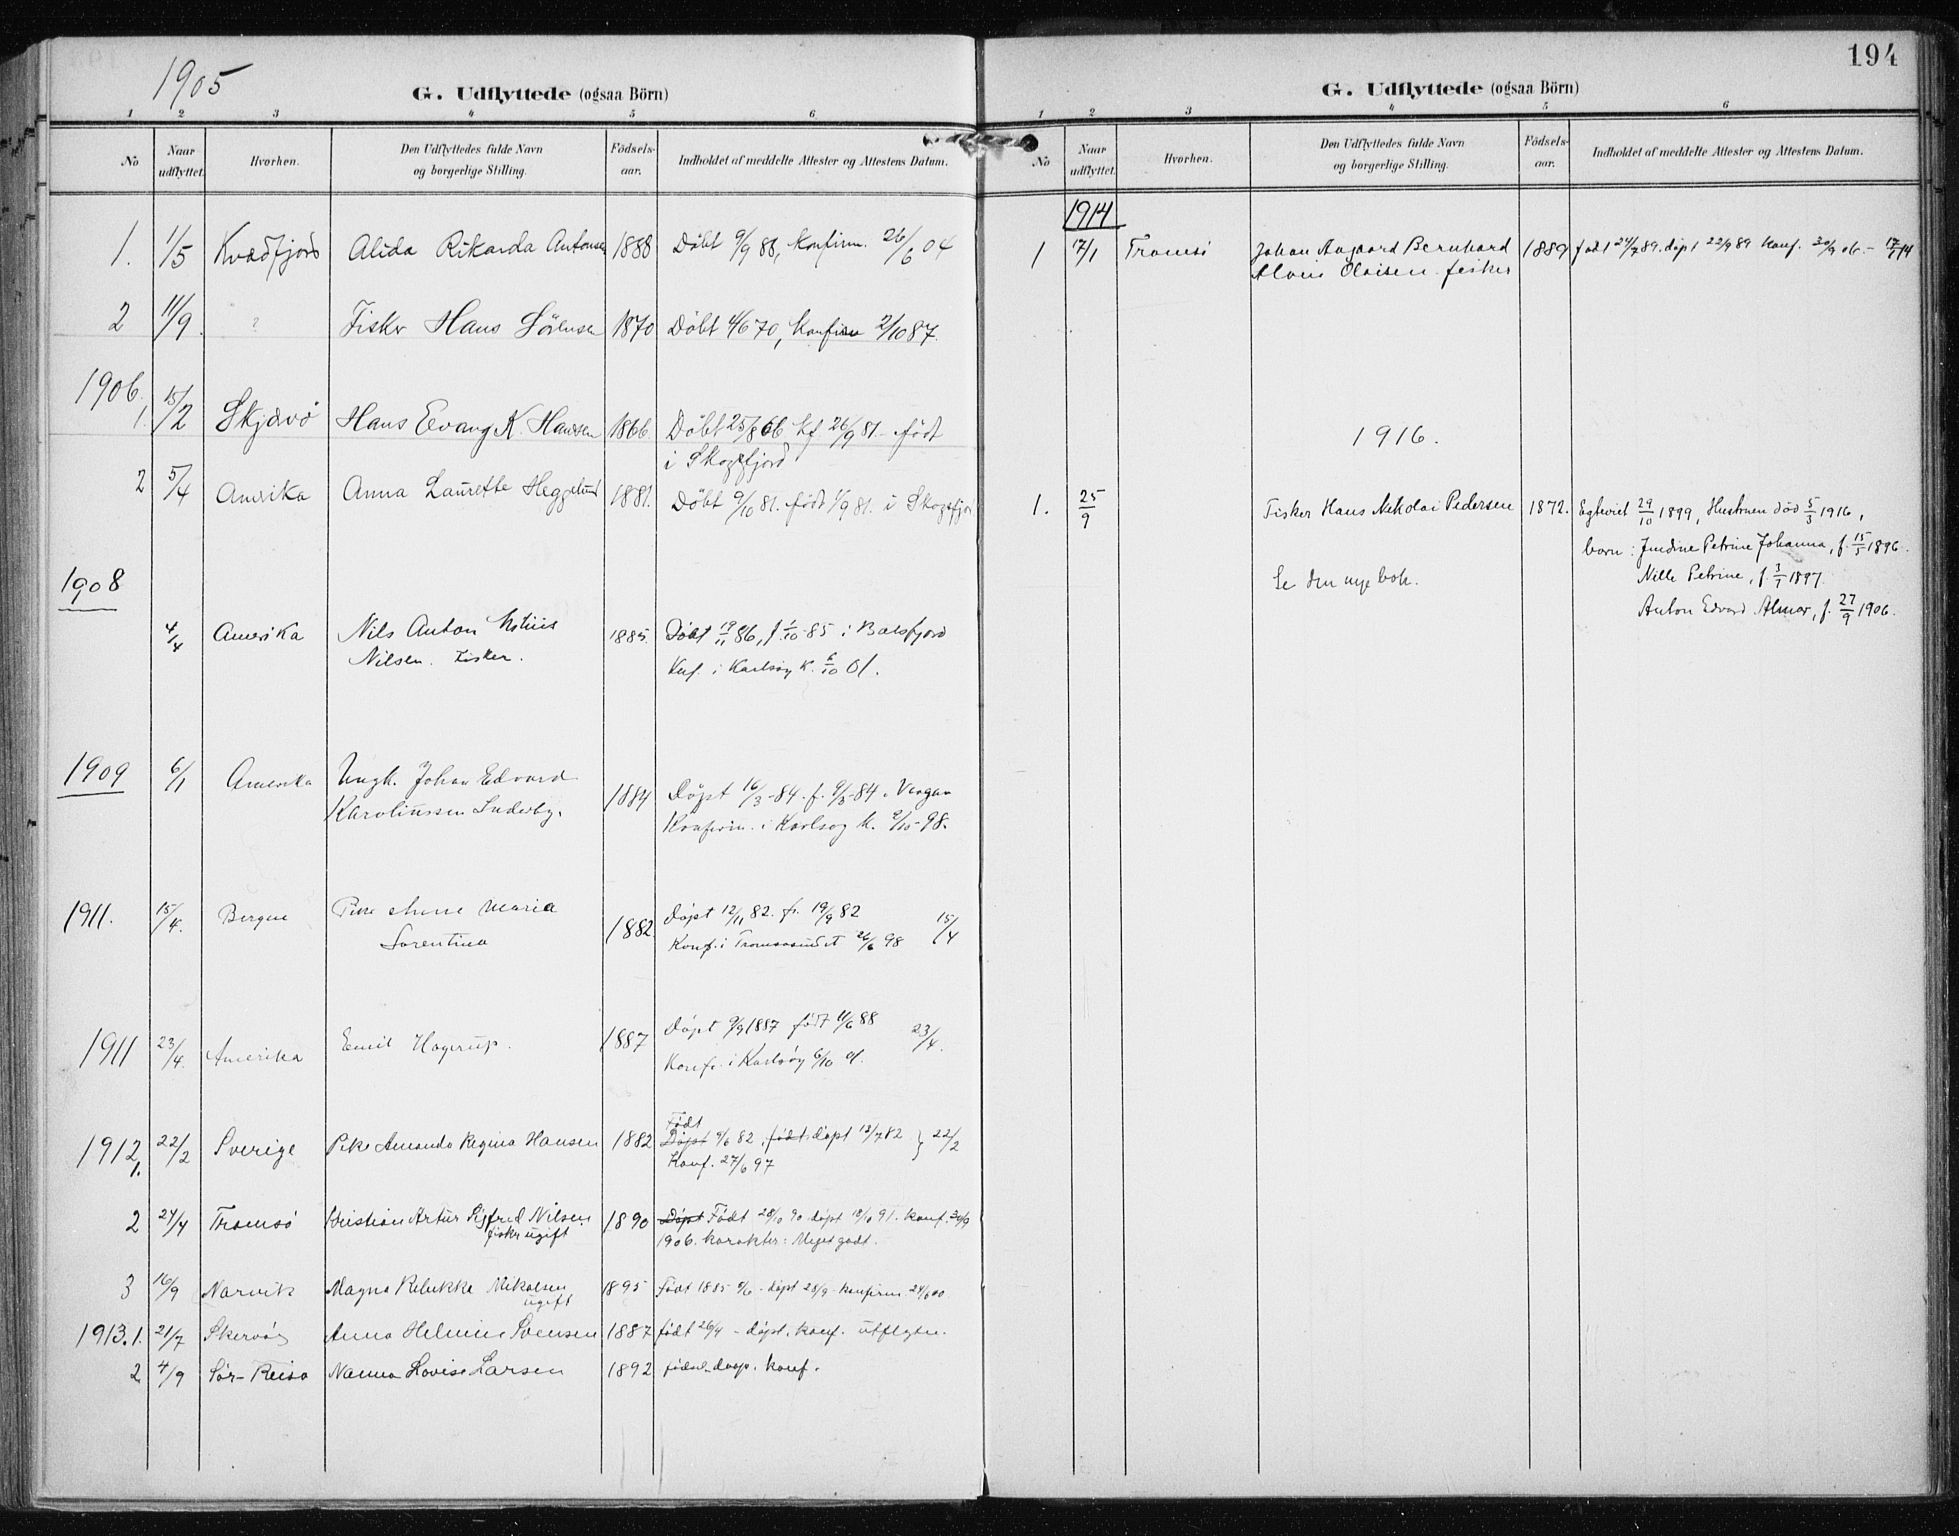 1905
G. Udflyttede (ogsaa Börn)
1 2 3 4 5 6
No Naar udflyttet. Hvorhen. Den Udflyttedes fulde Navn og borgerlige Stilling. Födsels-aar. Indholdet af meddelte Attester og Attestens Datum.
1. 1/5 Kvædfjord Alida Rikarda Antonsen 1888 Döbt 9/9 88, Konfirm. 26/6 04
2 11/9. ? Fisker Hans Sörensen 1870 Döbt 4/6 70, Konfirm 2/10 87.
1906.
1. 15/2 Skjærvö Hans Evang K. Hansen 1866 Döbt 25/8 66 kf 26/9 81 födt
i Skogsfjord
2 5/4 Amerika Anna Laurette Heggelund 1881. Döbt 9/10 81. födt 1/9 81. i Skogsfjord
1908
4/4 Amerika Nils Anton 1885. Döbt 19/11 86, f. 1/10-85 i Balsfjord
Nilsen. Fisker. Knf. i Karlsöy K. 6/10 01.
1909 6/1 Amerika Ungk. Johan Edvard
Karolinssen Suderby. 1884 Döpt 16/3-84. f. 9/3-84 i
Konfirm. i Karlsöy k. 2/10-98.
1911. 15/4. Bergen Pike Maria
Sorentina 1882. Döpt 12/11 82. f. 19/9 82
Konf. i Tromsösundet 26/6 98 15/4
1911 23/4. Amerika Emil Hagerup. 1887 Döpt 9/9 1887 födt 11/6 88 23/4.
Konf. i Karlsöy 6/10 01.
Födt
1912 1. 22/2 Sverige Pike Amanda Regina Hansen 1882 Döpt 9/6 82, födt döpt 13/7 82 } 22/2
Konf. 27/6 97
2 24/4 Tromsö Kristian Artur Sigfred Nilsen 1890 Döpt Födt 28/10 90 döpt 18/10 91. konf. 30/9
fisker ugift 1906. karakter: Meget godt.
3 16/9 Narvik Magna Rebekke Nikolsen 1895 Födt 1885 9/6 - döpt 28/9 - konfirm 24/6 00.
ugift
1913. 1. 21/7 Skervöy Anna Helmine Svensen 1887 födt 26/4 - döpt. konf. utflytn.
2 4/9 Sör-Reisa Nanna Lovise Larsen 1892 födsel-daap. konf.
194
G. Udflyttede (ogsaa Börn)
1 2 3 4 5 6
No Naar udflyttet. Hvorhen. Den Udflyttedes fulde Navn og borgerlige Stilling. Födsels-aar. Indholdet af meddelte Attester og Attestens Datum.
1914
1 17/1 Tromsö Johan Aagaard Bernhard 1889 födt 24/7 89. döpt 22/9 89 konf. 30/9 06. - 17/1 14
Olaisen fisker
1916.
1. 25/9 Fisker Hans Nikolai Pedersen 1872. Egteviet 29/10 1899, Hustruen död 5/3 1916,
barn: Jendine Petrine Johanna, f. 15/5 1896.
Se den nye bok. Nille Petrine, f. 3/1 1897.
Anton Edvard Almar, f. 27/9 1906.